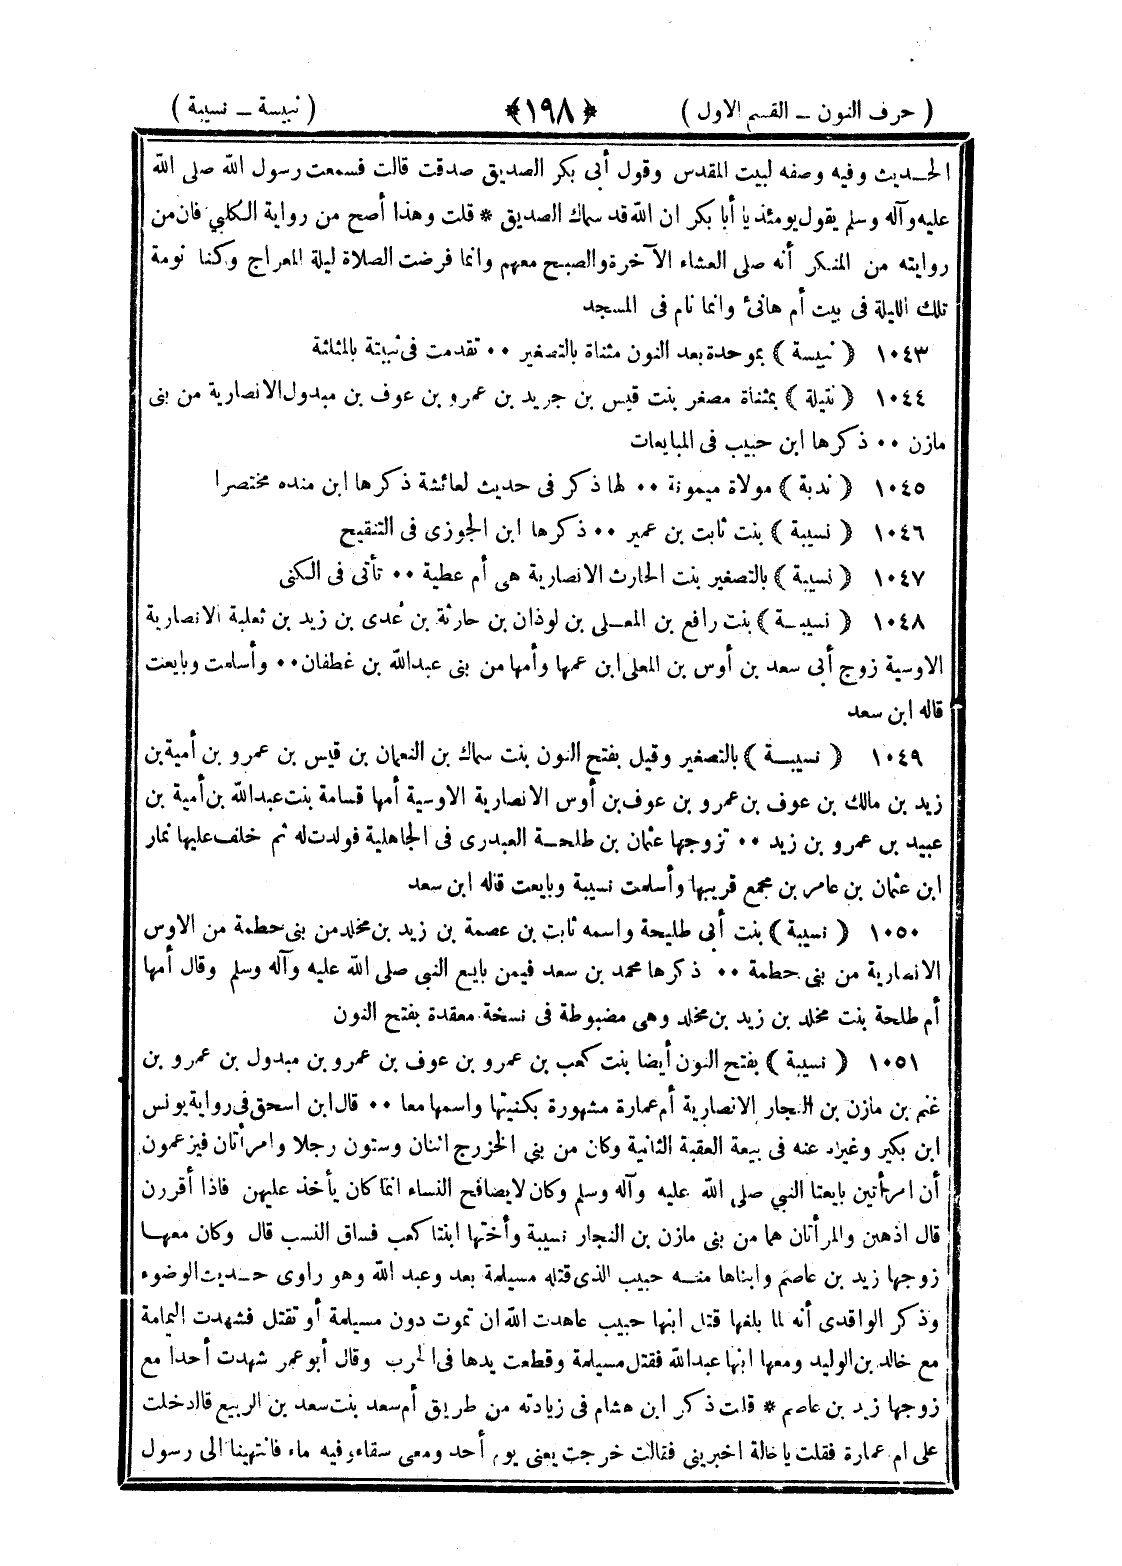 ( حرف النون ــ القسم الاول ) ﴿١٩٨﴾ ( نبيسة ــ نسيبة )
الحـديث وفيه وصفه لبيت المقدس وقول أبى بكر الصديق صدقت قالت فسمعت رسول الله صلى الله
عليه وآله وسلم يقول يومئذ يا أبا بكر ان الله قد سماك الصديق * قلت وهذا أصح من رواية الكلبي فان من
روايته من المنكر أنه صلى العشاء الآخرة والصبح معهم وانما فرضت الصلاة ليلة المعراج وكذا نومة
تلك الليلة فى بيت أم هانئ وانما نام فى المسجد
١٠٤٣ ﴿ نبيسة ﴾ بموحدة بعد النون مثناة بالتصغير ٠٠ تقدمت فى نبيتة بالمثلثة
١٠٤٤ ﴿ نتيلة ﴾ بمثناة مصغر بنت قيس بن جريد بن عمرو بن عوف بن مبدول الانصارية من بنى
مازن ٠٠ ذكرها ابن حبيب فى المبايعات
١٠٤٥ ﴿ ندبة ﴾ مولاة ميمونة ٠٠ لها ذكر فى حديث لعائشة ذكرها ابن منده مختصرا
١٠٤٦ ﴿ نسيبة ﴾ بنت ثابت بن عمير ٠٠ ذكرها ابن الجوزى فى التنقيح
١٠٤٧ ﴿ نسيبة ﴾ بالتصغير بنت الحارث الانصارية هى أم عطية ٠٠ تأتى فى الكنى
١٠٤٨ ﴿ نسيبـة ﴾ بنت رافع بن المعـلى بن لوذان بن حارثة بن عدى بن زيد بن ثعلبة الانصارية
الاوسية زوج أبى سعد بن أوس بن المعلى ابن عمها وأمها من بنى عبدالله بن غطفان ٠٠ وأسلمت وبايعت
قاله ابن سعد
١٠٤٩ ﴿ نسيبـة ﴾ بالتصغير وقيل بفتح النون بنت سماك بن النعمان بن قيس بن عمرو بن أمية بن
زيد بن مالك بن عوف بن عمرو بن عوف بن أوس الانصارية الاوسية أمها قسامة بنت عبدالله بن أمية بن
عبيد بن عمرو بن زيد ٠٠ تزوجها عثمان بن طلحـة العبدرى فى الجاهلية فولدت له ثم خلف عليها نمار
ابن عثمان بن عامر بن مجمع قريبها وأسلمت نسيبة وبايعت قاله ابن سعد
١٠٥٠ ﴿ نسيبة ﴾ بنت أبى طليحة واسمه ثابت بن عصمة بن زيد بن مخلد من بنى حطمة من الاوس
الانصارية من بنى حطمة ٠٠ ذكرها محمد بن سعد فيمن بايع النبى صلى الله عليه وآله وسلم وقال أمها
أم طلحة بنت مخلد بن زيد بن مخلد وهى مضبوطة فى نسخة معقدة بفتح النون
١٠٥١ ﴿ نسيبة ﴾ بفتح النون أيضا بنت كعب بن عمرو بن عوف بن عمرو بن مبدول بن عمرو بن
غنم بن مازن بن النجار الانصارية أم عمارة مشهورة بكنيتها واسمها معا ٠٠ قال ابن اسحق فى رواية يونس
ابن بكير وغيره عنه فى بيعة العقبة الثانية وكان من بني الخزرج اثنان وستون رجلا وامرأتان فيزعمون
أن امرأتين بايعتا النبي صلى الله عليه وآله وسلم وكان لا يصافح النساء انما كان يأخذ عليهن فاذا أقررن
قال اذهبن والمرأتان هما من بنى مازن بن النجار نسيبة وأختها ابنتا كعب فساق النسب قال وكان معهـا
زوجها زيد بن عاصم وابناها منـه حبيب الذى قتله مسيلمة بعد وعبد الله وهو راوى حـديث الوضوء
وذكر الواقدى أنه لما بلغها قتل ابنها حبيب عاهدت الله ان تموت دون مسيلمة أو تقتل فشهدت اليمامة
مع خالد بن الوليد ومعها ابنها عبدالله فقتل مسيلمة وقطعت يدها فى الحرب وقال أبو عمر شهدت أحدا مع
زوجها زيد بن عاصم * قلت ذكر ابن هشام فى زيادته من طريق أم سعد بنت سعد بن الربيع قالت دخلت
على ام عمارة فقلت يا خالة اخبرينى فقالت خرجت يعنى يوم أحد ومعى سقاء وفيه ماء فانتهينا الى رسول